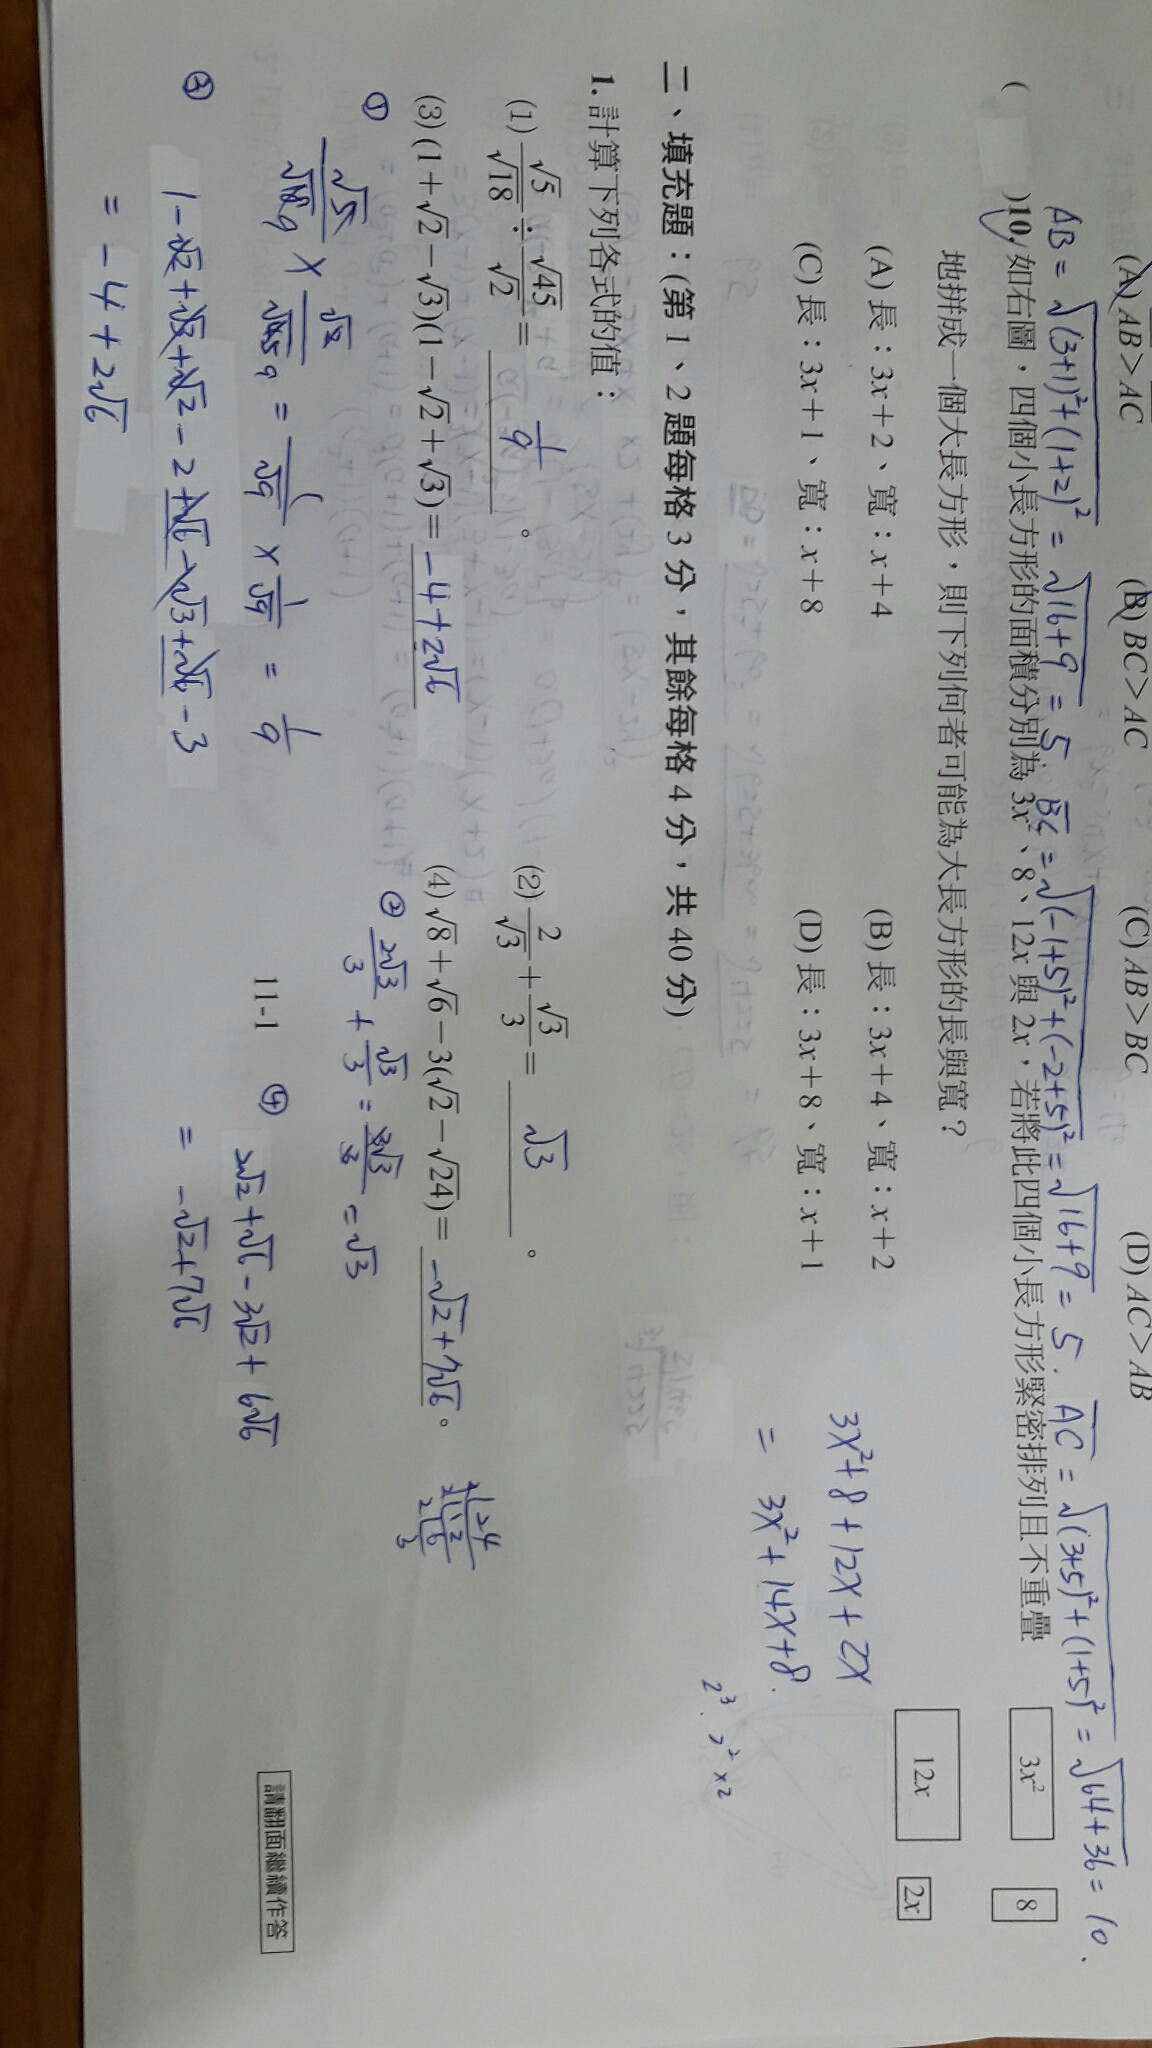 (A) AB>AC (B) BC>AC (C) AB>BC (D) AC>AB
AB = √(3+1)²+(1+2)² = √16+9 = 5. BC = √(-1+5)²+(-2+5)² = √16+9 = 5. AC = √(3+5)²+(1+5)² = √64+36 = 10.
( )10. 如右圖，四個小長方形的面積分別為 3x²、8、12x 與 2x，若將此四個小長方形緊密排列且不重疊
地拼成一個大長方形，則下列何者可能為大長方形的長與寬？
3x²
8
12x
2x
(A) 長：3x+2、寬：x+4 (B) 長：3x+4、寬：x+2
(C) 長：3x+1、寬：x+8 (D) 長：3x+8、寬：x+1
3x²+8+12x+2x
= 3x²+14x+8.
2³. 2²×2
二、填充題：(第 1、2 題每格 3 分，其餘每格 4 分，共 40 分)
1. 計算下列各式的值：
(1) √5/√18 ÷ √45/√2 = 1/9 。 (2) 2/√3 + √3/3 = √3 。
(3) (1+√2−√3)(1−√2+√3) = -4+2√6 (4) √8+√6−3(√2−√24) = -√2+7√6 。
2|24
2|12
2|6
3
① √5/√18 9 × √2/√45 9 = 1/√9 × 1/√9 = 1/9
② 2√3/3 + √3/3 = 3√3/3 = √3
③ 1-√2+√3+√2-2+√6-√3+√6-3
= -4+2√6
④ 2√2+√6-3√2+6√6
= -√2+7√6
11-1
請翻面繼續作答